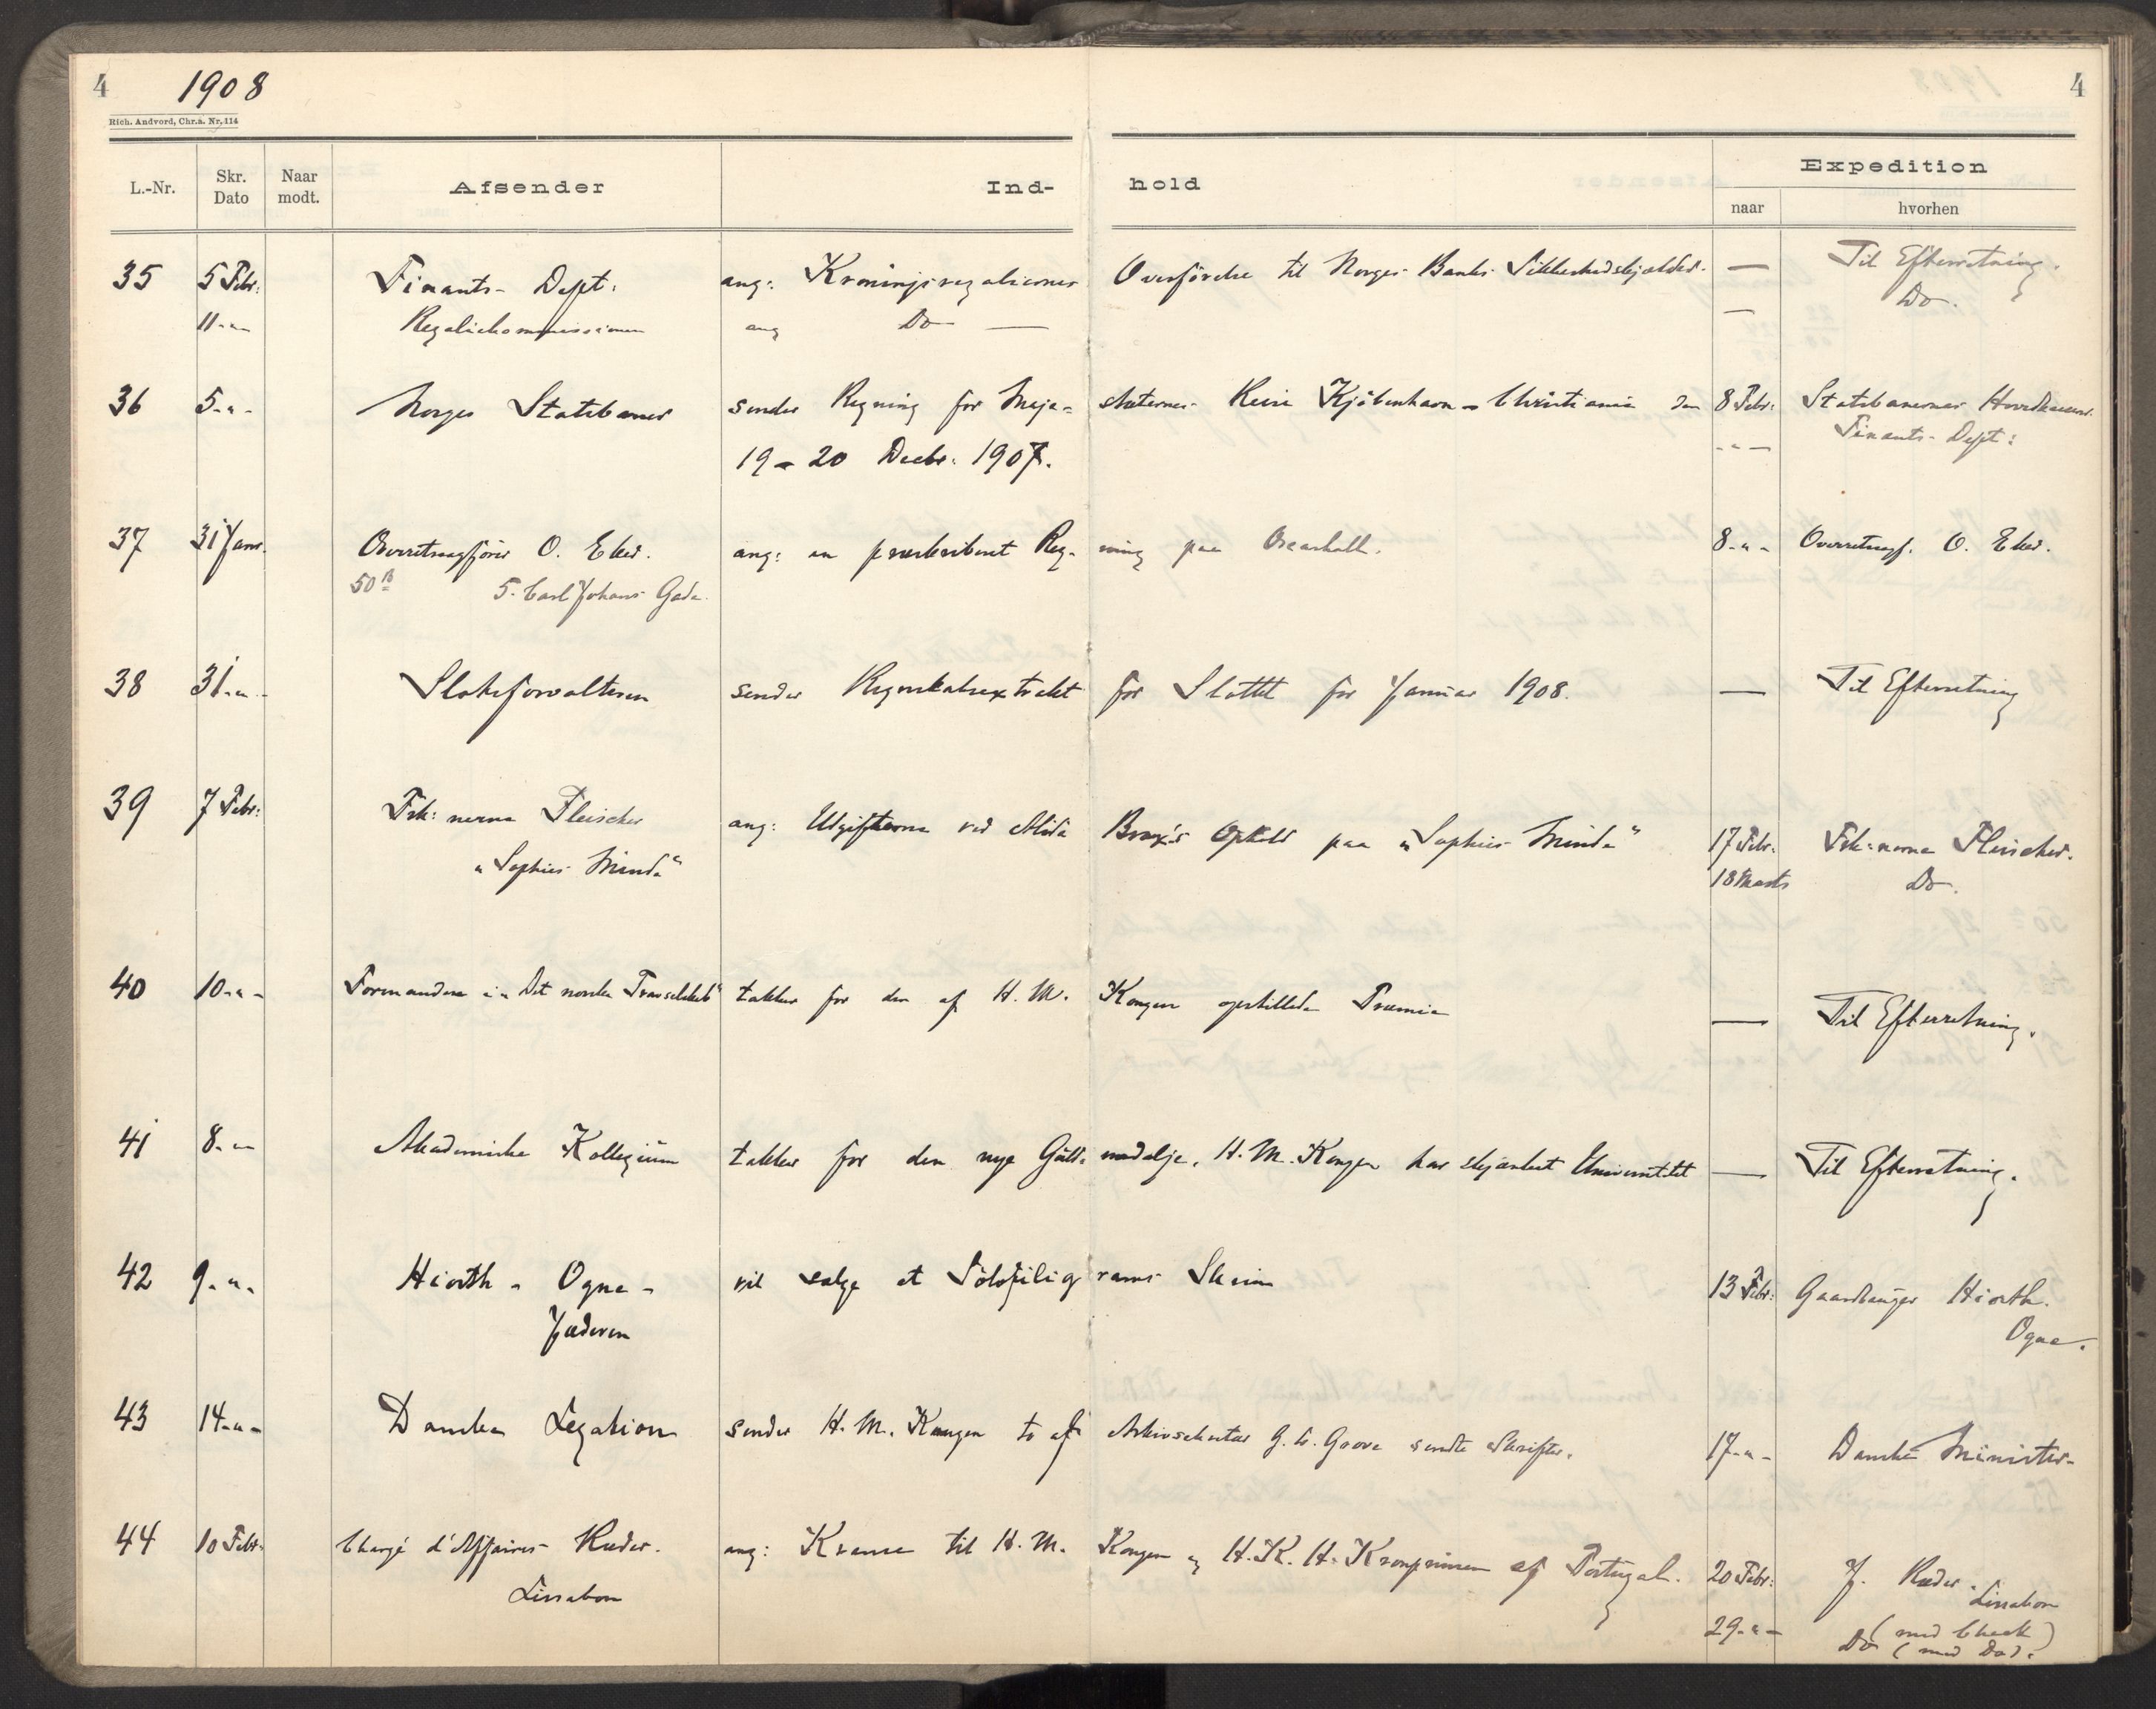 4 1908 4
Rich. Andvord, Chr.a. Nr. 114
L.-Nr. Skr. Dato Naar modt. Afsender Ind- hold Expedition
naar hvorhen
35 5 Febr: Finants- Dept: ang: Kroningsregaliernes Overförelse til Norges Banks Sikkerhedskjælder. — Til Efterretning.
11-"- Regaliekommissionen ang Do — — Do.
36 5-"- Norges Statsbaner sender Regning for Maje- stæternes Reise Kjöbenhavn - Christiania den 8 Febr: Statsbanernes Hovedkasserer
19-20 Decbr: 1907. -"- Finants- Dept:
37 31 Janr. Overretssagförer O. Eker. ang: en præskriberet Reg- ning paa Oscarshall. 8-"- Overretssagf. O. Eker.
50 B 5. Carl Johans Gade.
38 31-"- Slotsforvalteren sender Regnskabsextrakt for Slottet for Januar 1908. — Til Efterretning
39 7 Febr: Frk:nerne Fleischer ang: Udgifterne ved Alida Brox's Ophold paa "Sophies Minde" 17 Febr: Frk:nerne Fleischer.
"Sophies Minde" 18 Marts Do.
40 10-"- Formanden i "Det norske Travselskab" takker for den af H. M. Kongen opstillede Præmie — Til Efterretning.
41 8-"- Akademiske Kollegium takker for den nye Guld- medalje, H. M. Kongen har skjænket Universitetet — Til Efterretning.
42 9-"- Hiorth - Ogne - vil sælge et Sölvfilig rams Skrin 13 Febr: Gaardbruger Hiorth.
Jæderen Ogne.
43 14-"- Danske Legation sender H. M. Kongen to af Arkivsekretær G. L. Grove sendte Skrifter. 17-"- Danske Minister-
44 10 Febr: Chargé d'Affaires Ræder. ang: Kranse til H. M. Kongen og H. K. H. Kronprinsen af Portugal. 20 Febr: J. Ræder. Lissabon
Lissabon (med Check)
29-"- Do (med Do).